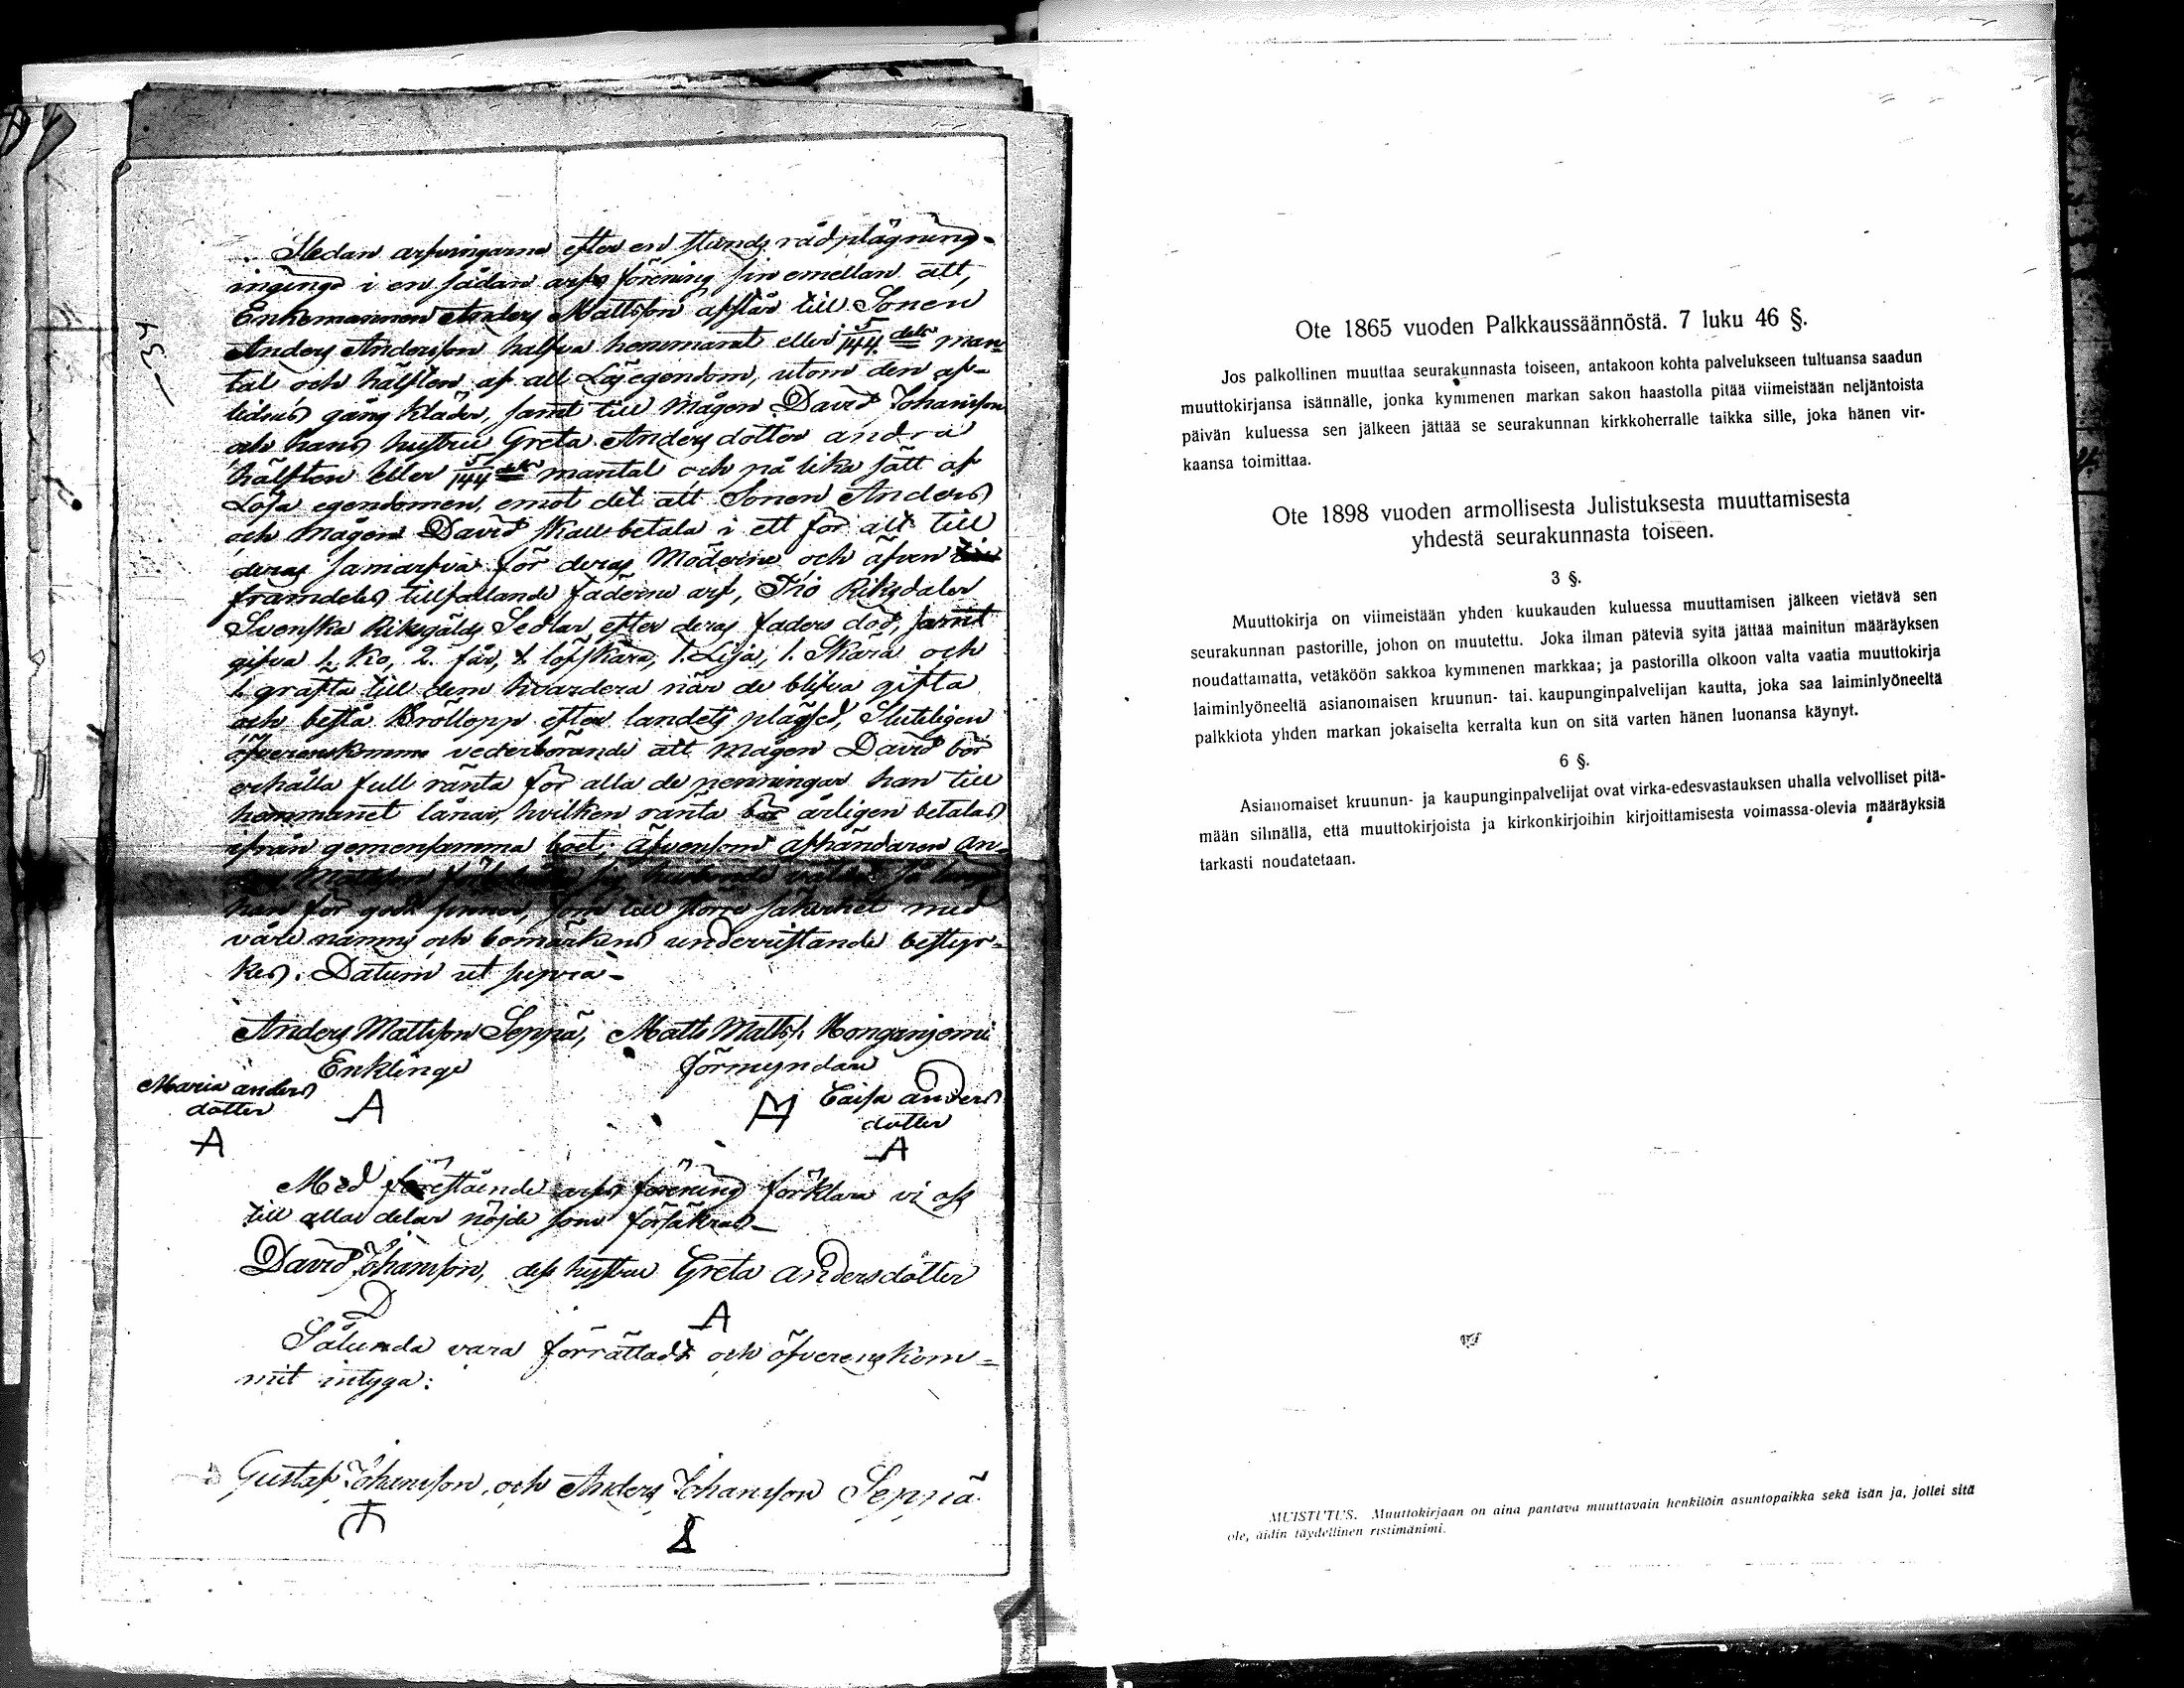 Sedan arfvingarne efter en stunds rådplägning
ingingo i en sådan arfs förening sin emellan att,
Enkemannen Anders Mattsson afstår till Sonen
Anders Andersson halfva hemmanet eller 5/144 dels man-
tal och hälften af all Lösegendom, utom den af-
lidnes gång kläder, samt till mågen David Johansson
och hans hustru Greta Anders dotter andra
hälften eller 5/144 dels mantal och på lika sätt af
Lösa egendomen, emot det att Sonen Anders
och mågen David skall betala i ett för allt till
deras samarfva för deras Möderne och äfven
framdeles tillfallande fäderne arf, Tio Riksdaler
Svenska Riksgälds Sedlar efter deras faders död, samt
gifva 1. Ko, 2. får, 1. löfskära, 1. Lija, 1. Skära och
1. gräfta till dem hvardera när de blifva gifta
och bestå Bröllopp efter landets plägsed, Sluteligen
öfverenskomma vederbörande att mågen David bör
erhålla full ränta för alla de penningar han till
hemmanet lånar, hvilken ränta bör årligen betalas
ifrån gemensamma boet; äfvensom afhändaren An-
han för godt finner, som till större säkerhet med
våra namns och bomärkens undersättande bestyr-
kes. Datum ut supra -
Anders Mattsson Seppä, Matts Matts. Honganjemi
Enkling förmyndare
Maria anders Caisa anders
dotter A M dotter
A A
Med förestående arfs förening förklara vi oss
till alla delar nöjde som försäkras -
David Johansson, dess hustru Greta andersdotter
D A
Sålunda vara förrättadt och öfverenskom-
mit intyga:
Gustaf Johansson, och Anders Johansson Seppä
Ote 1865 vuoden Palkkaussäännöstä. 7 luku 46 §.
Jos palkollinen muuttaa seurakunnasta toiseen, antakoon kohta palvelukseen tultuansa saadun
muuttokirjansa isännälle, jonka kymmenen markan sakon haastolla pitää viimeistään neljäntoista
päivän kuluessa sen jälkeen jättää se seurakunnan kirkkoherralle taikka sille, joka hänen vir-
kaansa toimittaa.
Ote 1898 vuoden armollisesta Julistuksesta muuttamisesta
yhdestä seurakunnasta toiseen.
3 §.
Muuttokirja on viimeistään yhden kuukauden kuluessa muuttamisen jälkeen vietävä sen
seurakunnan pastorille, johon on muutettu. Joka ilman päteviä syitä jättää mainitun määräyksen
noudattamatta, vetäköön sakkoa kymmenen markkaa; ja pastorilla olkoon valta vaatia muuttokirja
laiminlyöneeltä asianomaisen kruunun- tai kaupunginpalvelijan kautta, joka saa laiminlyöneeltä
palkkiota yhden markan jokaiselta kerralta kun on sitä varten hänen luonansa käynyt.
6 §.
Asianomaiset kruunun- ja kaupunginpalvelijat ovat virka-edesvastauksen uhalla velvolliset pitä-
mään silmällä, että muuttokirjoista ja kirkonkirjoihin kirjoittamisesta voimassa-olevia määräyksiä
tarkasti noudatetaan.
MUISTUTUS. Muuttokirjaan on aina pantava muuttavain henkilöin asuntopaikka sekä isän ja, jollei sitä
ole, äidin täydellinen ristimänimi.